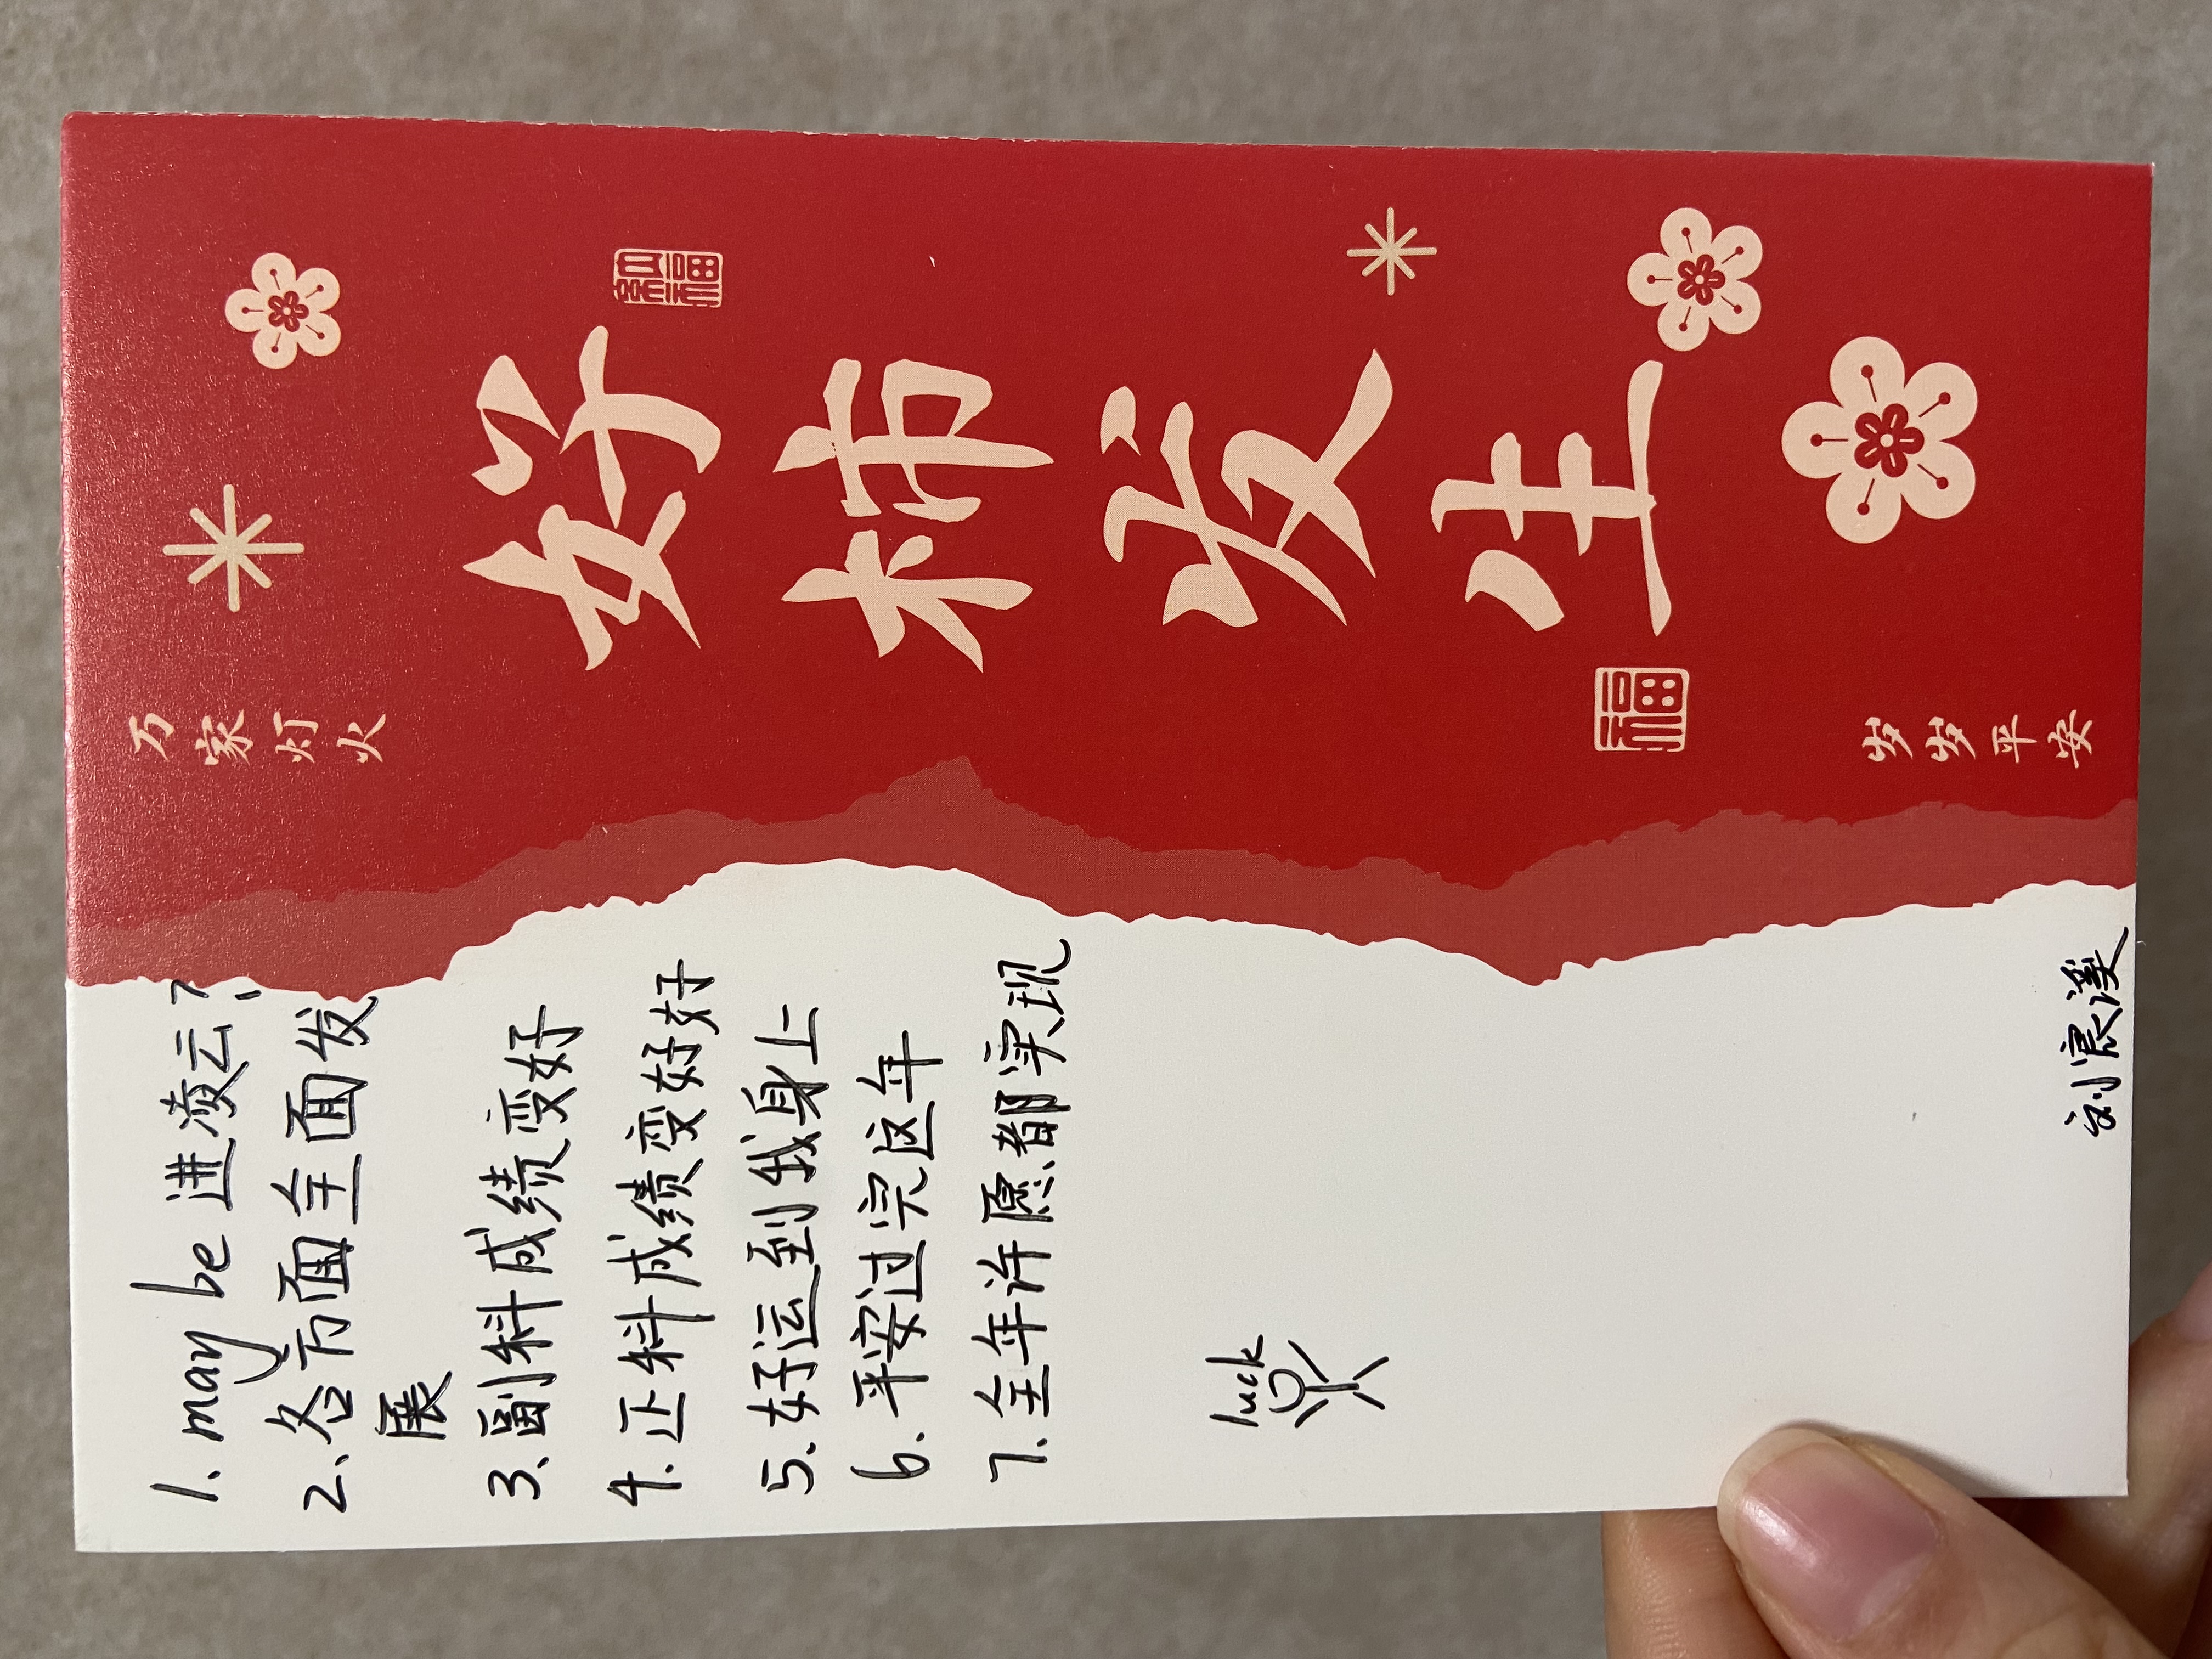 好柿发生
福
福
万家灯火
岁岁平安
1. may be 进凌云?
2. 各方面全面发
展
3. 副科成绩变好
4. 正科成绩变好好
5. 好运到我身上
6. 平安过完这年
7. 全年许愿都实现
luck
刘宸溪